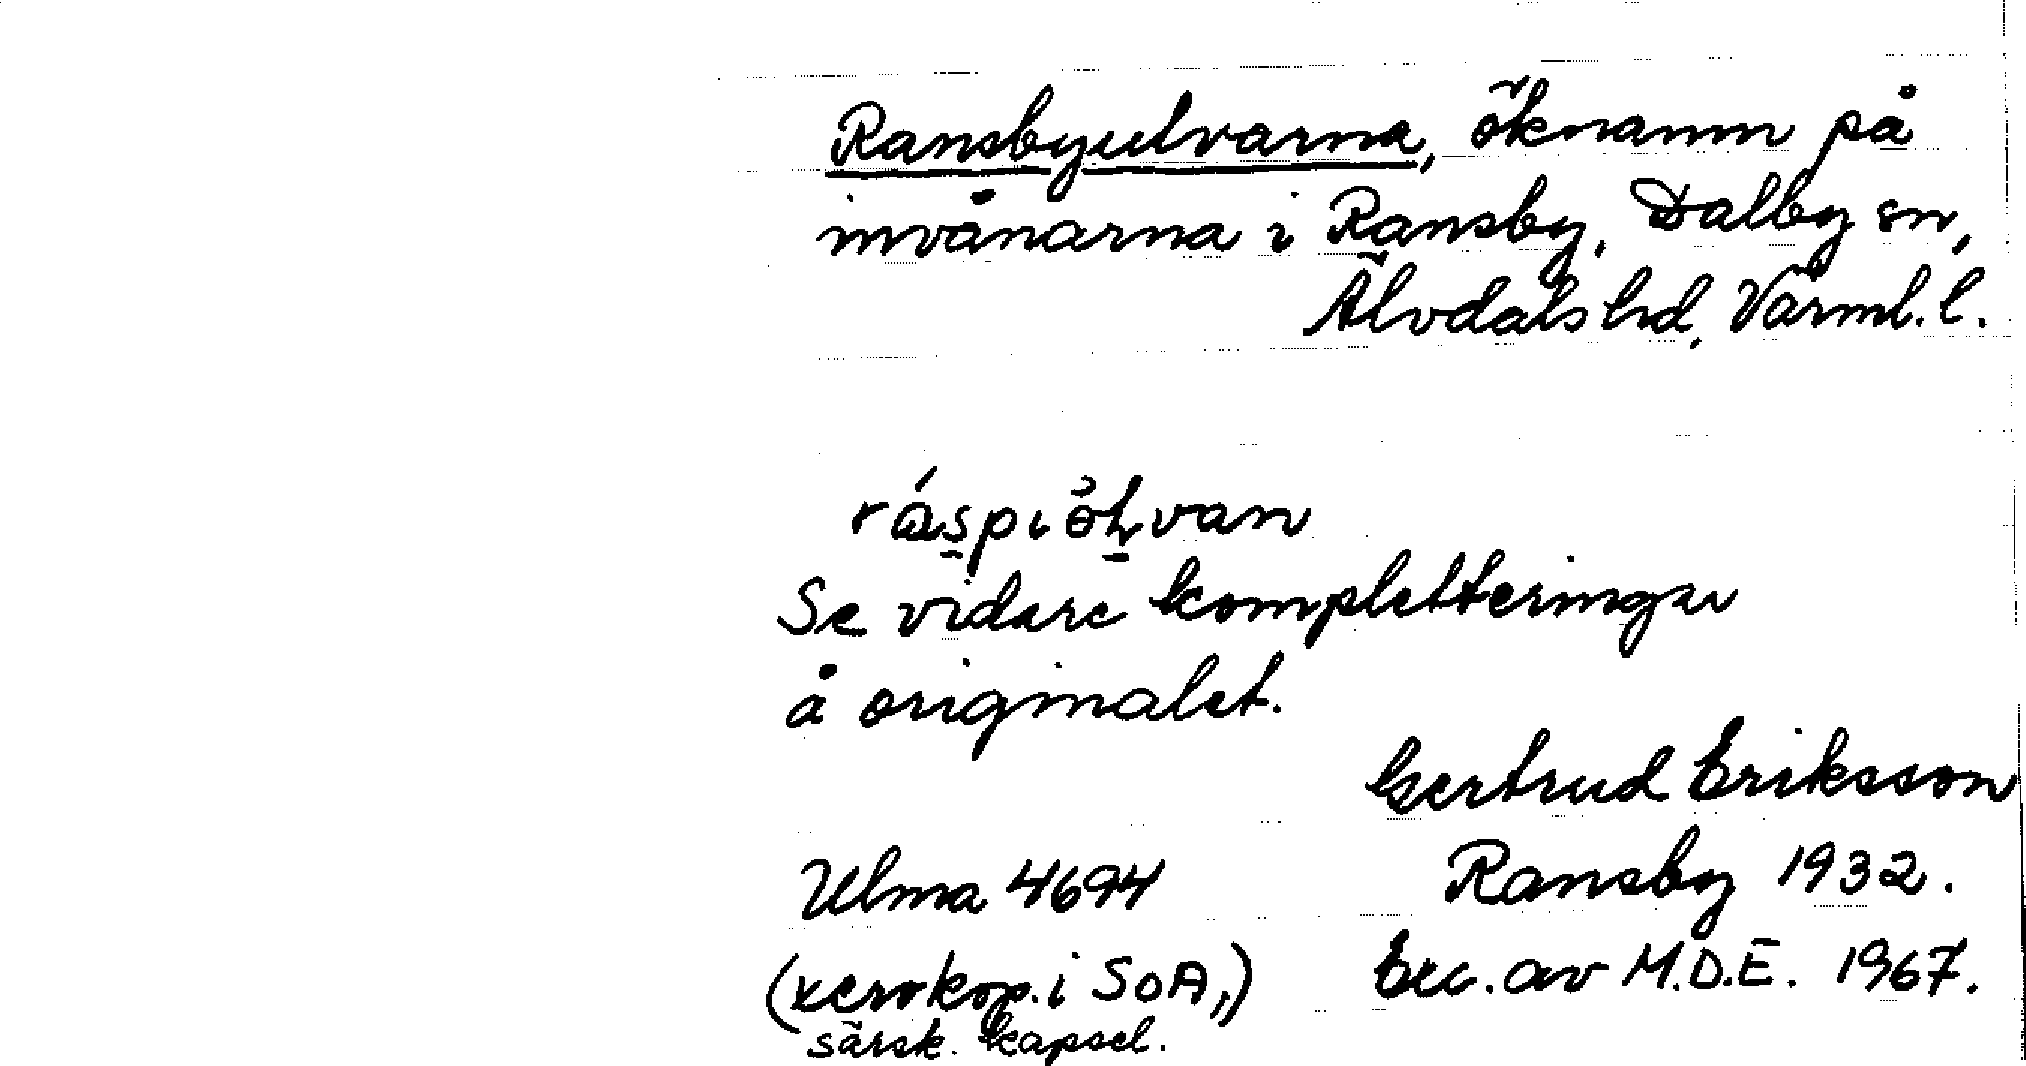 Ransbyulvarna, öknamn på
invånarna i Ransby, Dalby sn,
Älvdals hd, Värml. l.
Se vidare kompletteringar
å originalet.
Gertrud Eriksson
Ulma 4694 Ransby 1932.
(xerokop. i SOA,) Exc. av M.D.E. 1967.
särsk. kapsel.